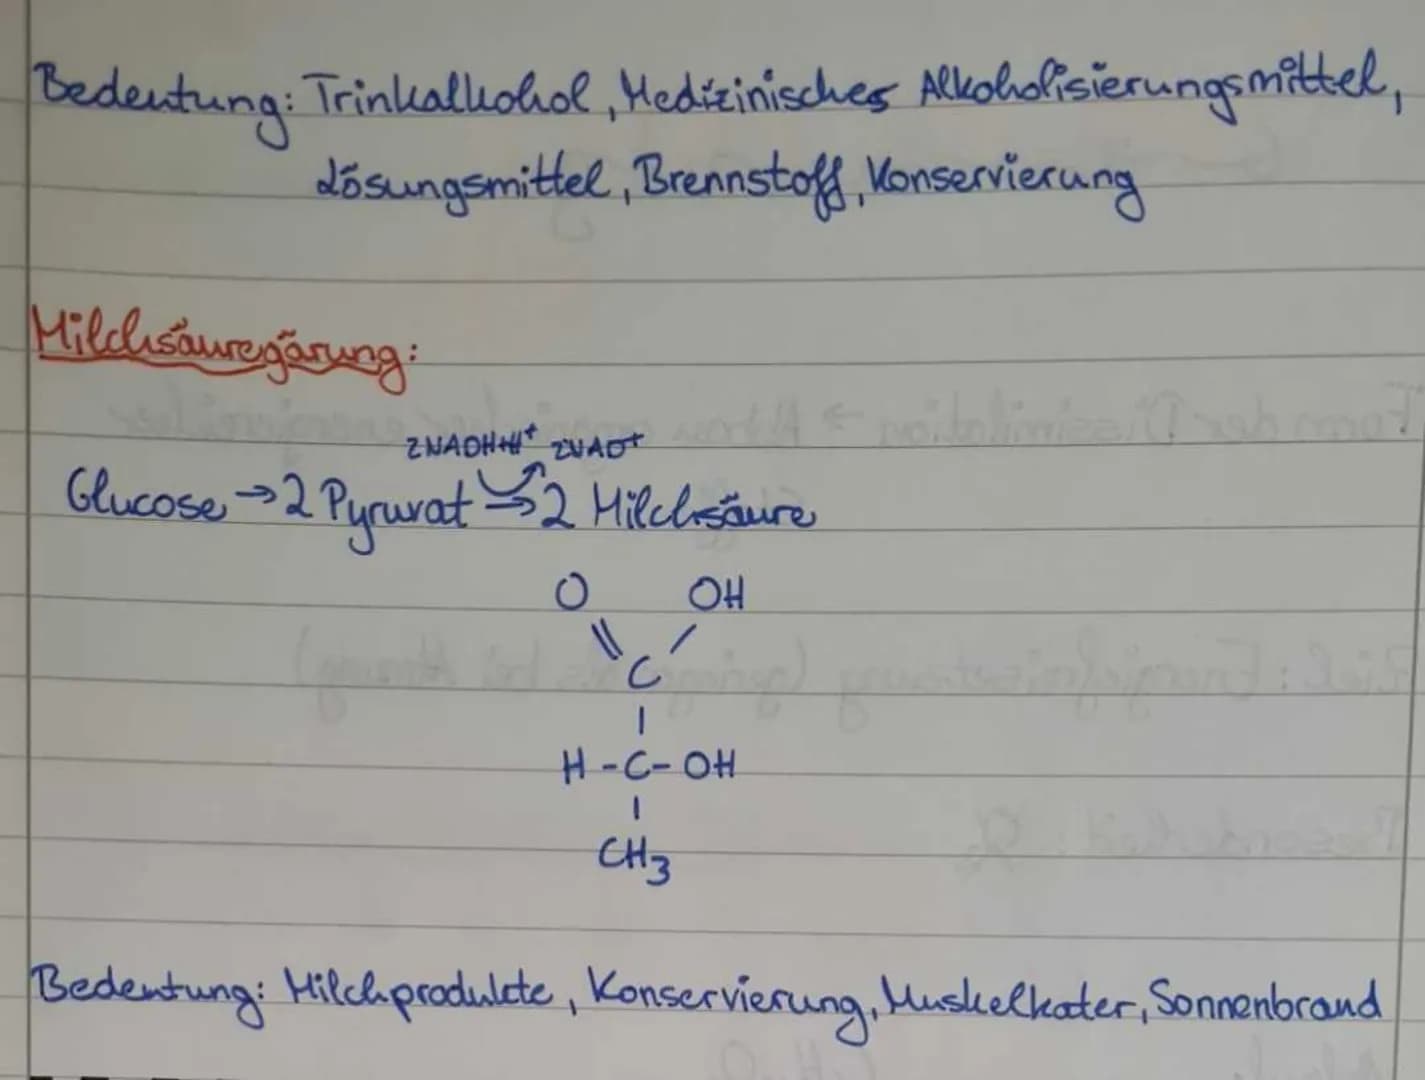 Bedeutung: Trinkalkohol, Medizinisches Alkoholisierungsmittel,
Lösungsmittel, Brennstoff, Konservierung
Milchsäuregärung:
2NADH+H⁺ 2NAD⁺
Glucose → 2 Pyruvat → 2 Milchsäure
O OH
\\ /
C
|
H - C - OH
|
CH₃
Bedeutung: Milchprodukte, Konservierung, Muskelkater, Sonnenbrand